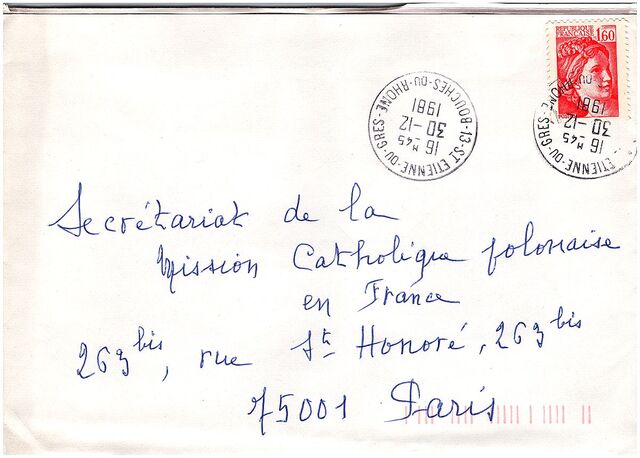 REPUBLIQUE
FRANÇAISE
1,60
13-ST ETIENNE-DU-GRES-BOUCHES-DU-RHONE
16 H45
30-12
1981
ETIENNE-DU-GRES-
16 H45
30-12
1981
Secrétariat de la
Mission Catholique polonaise
en France
263 bis, rue St Honoré, 263 bis
75001 Paris